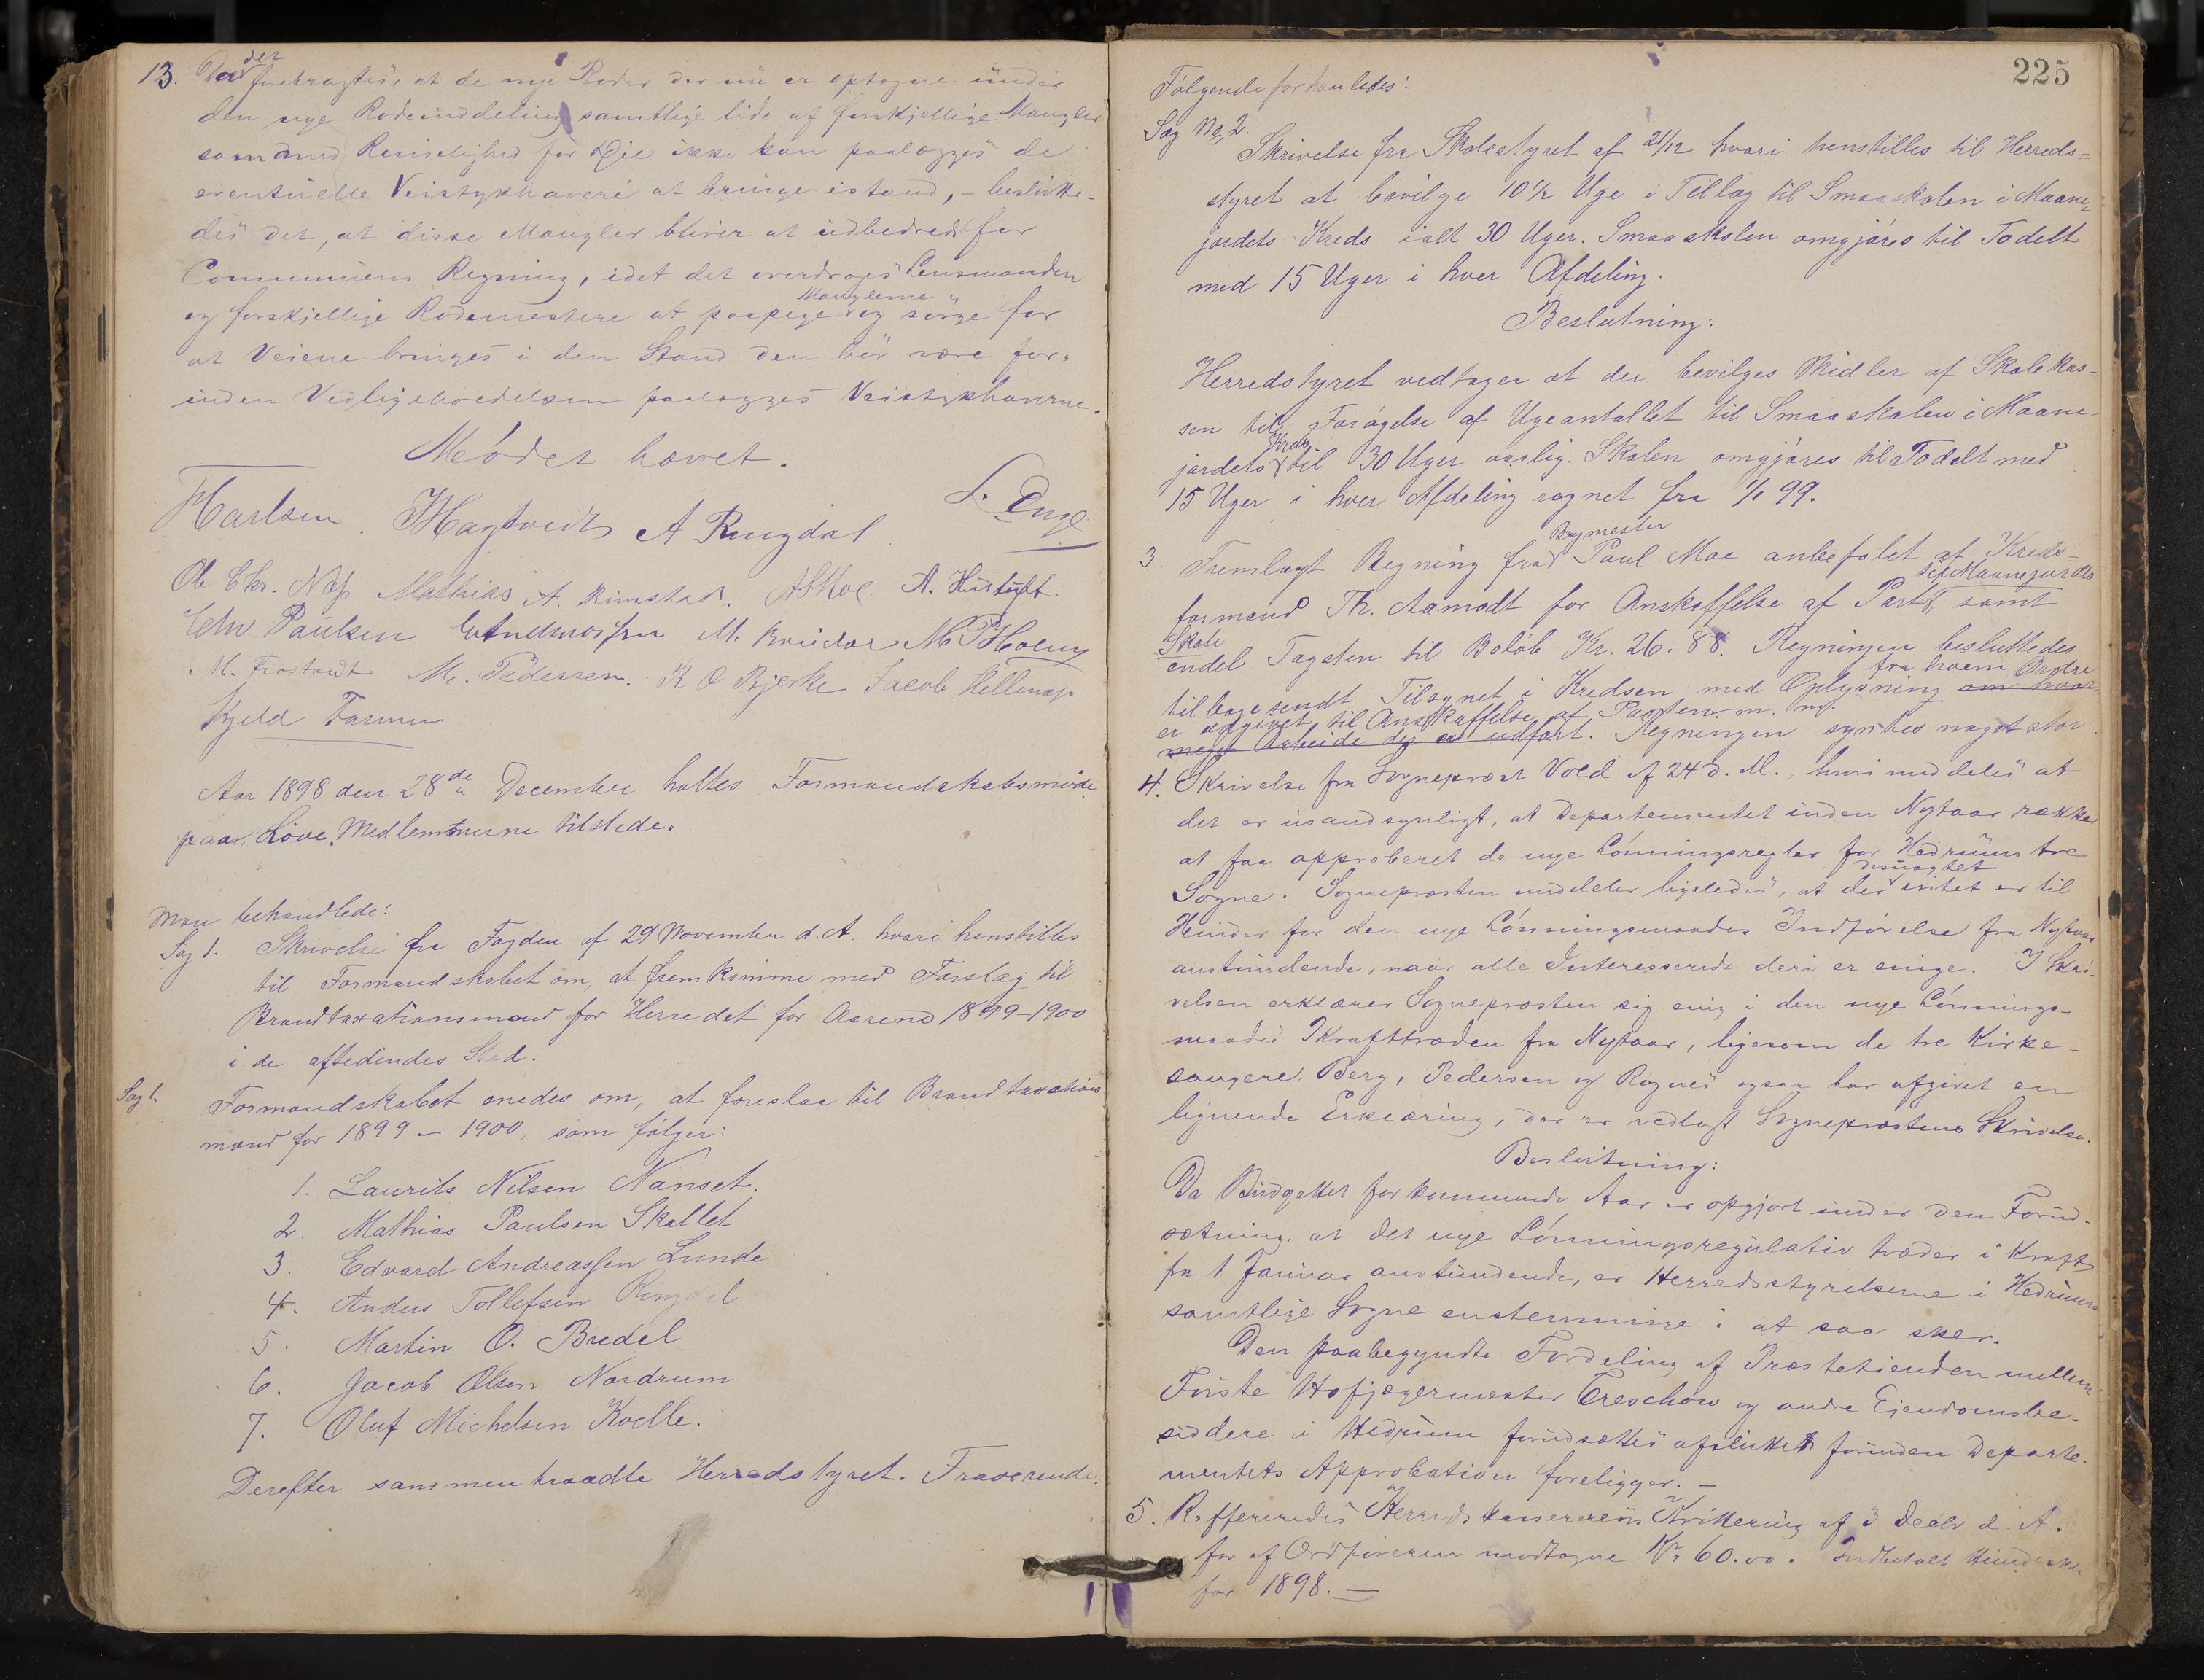 13. Da det forebragtes, at de nye Roder der nu er optagne under
den nye Rodeinddeling samtlige lide af forskjellige Mangler
som med Rimelighed for Øie ikke kan paalægges de
eventuelle Veistykhavere at bringe istand, – beslutte-
des det, at disse Mangler bliver at udbedres for
Communens Regning, idet det overdrages Lensmanden
og forskjellige Rodemestere at paapege Manglerne og sørge for
at Veiene bringes i den Stand den bør være for-
inden Vedligeholdelsen paalægges Veistykhaverne.
Mödet hævet.
F Karlsen. J Hagtvedt A Ringdal L. Enge
Ole Chr. Næss Mathias A. Rimstad. A S Moe A. Hustuft
Edv Paulsen M. Kvidar M P Holm
M. Trostvedt M. Pedersen. K O Bjerke Jacob Hellenæs
Kjeld Farmen
Aar 1898 den 28de December holtes Formandskabsmøde
paa Løve. Medlemmerne tilstede.
Man behandlede:
Sag 1. Skrivelse fra Fogden af 29 November d.A. hvori henstilles
til Formandskabet om, at fremkomme med Forslag til
Brandtaxationsmænd for Herredet for Aarene 1899–1900
i de aftrædendes Sted.
Sag 1. Formandskabet enedes om, at foreslaa til Brandtaxations
mænd for 1899 – 1900, som følger:
1. Laurits Nilsen Nanset.
2. Mathias Paulsen Skallet
3. Edvard Andreassen Lunde
4. Anders Tollefsen Ringdal
5. Martin O. Bredel
6. Jacob Olsen Nordrum
7. Oluf Michelsen Kvelle.
Derefter sammentraadte Herredstyret. Fraværende
225
Følgende forhandledes:
Sag No 2.
Skrivelse fra Skolestyret af 21/12 hvori henstilles til Herreds=
styret at bevilge 10½ Uge i Tillæg til Smaaskolen i Maane-
jordets Kreds ialt 30 Uger. Smaaskolen omgjøres til Todelt
med 15 Uger i hver Afdeling.
Beslutning:
Herredstyret vedtager at der bevilges Midler af Skolekas=
sen til Forøgelse af Ugeantallet til Smaaskolen i Maane-
jordets Kreds til 30 Uger aarlig. Skolen omgjøres til Todelt med
15 Uger i hver Afdeling regnet fra 1/1 99.
3 Fremlagt Regning fra Bygmester Paul Moe anbefalet af Kreds-
formand Th. Aamodt for Anskaffelse af Port til Maanejordets Skole samt
endel Tagsten til Beløb Kr. 26.88. Regningen besluttedes
tilbagesendt Tilsynet i Kredsen med Oplysning om hvor fra hvem Ordre
er udgivet til Anskaffelse af Porten m. m.
meget Arbeide der er udført. Regningen synes noget stor.
4. Skrivelse fra Sogneprest Vold af 24 d. M., hvori meddeles at
det er usandsynligt, at Departementet inden Nytaar rækker
at faa approberet de nye Lønningsregler for Hedrums tre
Sogne. Sognepresten meddeler ligeledes, at der desuagtet intet er til
Hinder for den nye Lønningsmaades Indførelse fra Nytaar
anstundende, naar alle Interesserede deri er enige. I Skri-
velsen erklærer Sognepresten sig enig i den nye Lønnings-
maades Ikrafttræden fra Nytaar, ligesom de tre Kirke-
sangere, Berg, Pedersen og Rognes ogsaa har afgivet en
lignende Erklæring, der er vedlagt Sogneprestens Skrivelse.
Beslutning:
Da Budgettet for kommende Aar er opgjort under den Forud-
sætning, at det nye Lønningsregulativ træder i Kraft
fra 1 Januar anstundende, er Herredsstyrelserne i Hedrums
samtlige Sogne enstemmige i at saa sker.
Den paabegyndte Fordeling af Prestetienden mellem
Første Hofjægermester Treschow og andre Eiendomsbe-
siddere i Hedrum forudsættes afsluttet forinden Departe-
mentets Approbation foreligger. –
5. Reffereredes Herredskassererens Kvittering af 3 Decbr d. A.
for af Ordføreren modtagne Kr 60.00. Indbetalt
for 1898. –